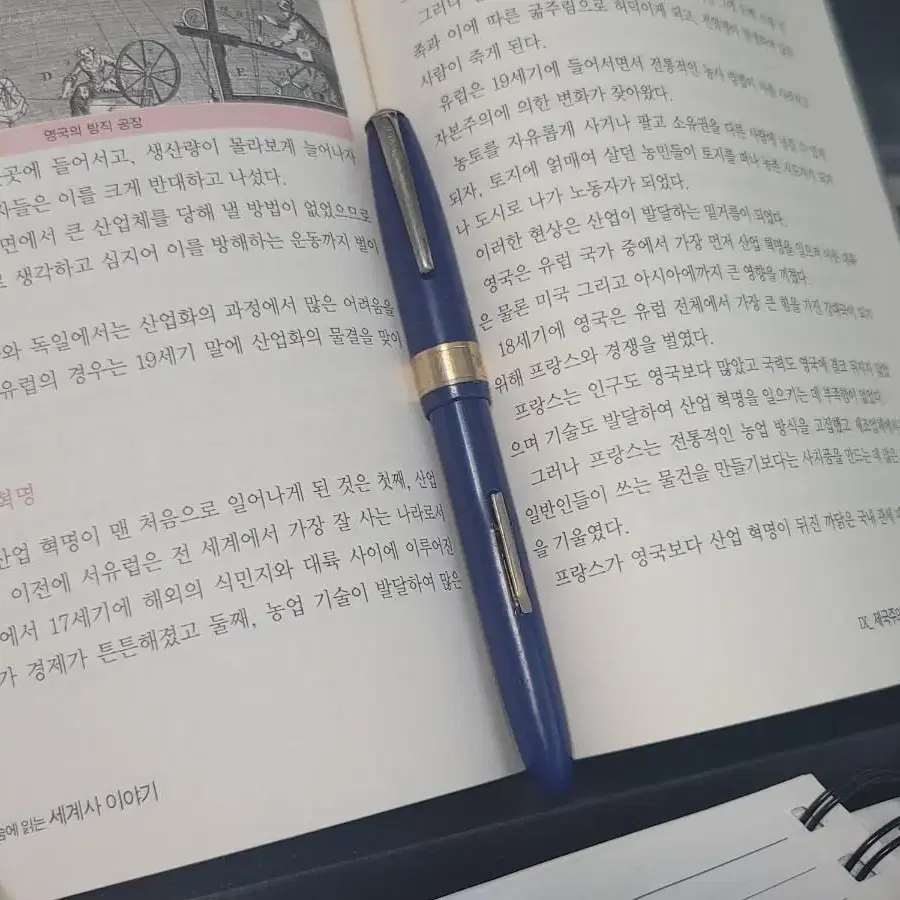 영국의 방직 공장
곳에 들어서고, 생산량이 몰라보게 늘어나자
자들은 이를 크게 반대하고 나섰다.
면에서 큰 산업체를 당해 낼 방법이 없었으므로
생각하고 심지어 이를 방해하는 운동까지 벌이
와 독일에서는 산업화의 과정에서 많은 어려움을
유럽의 경우는 19세기 말에 산업화의 물결을 맞이
혁명
산업 혁명이 맨 처음으로 일어나게 된 것은 첫째, 산업
이전에 서유럽은 전 세계에서 가장 잘 사는 나라로서
에서 17세기에 해외의 식민지와 대륙 사이에 이루어진
가 경제가 튼튼해졌고 둘째, 농업 기술이 발달하여 많은
읽는 세계사 이야기
그러나
족과 이에 따른 굶주림으로 허덕이게 되고,
사람이 죽게 된다.
유럽은 19세기에 들어서면서 전통적인 농사 방법이
자본주의에 의한 변화가 찾아왔다.
농토를 자유롭게 사거나 팔고 소유권을 다른 사람에게
되자, 토지에 얽매여 살던 농민들이 토지를 떠나
나 도시로 나가 노동자가 되었다.
이러한 현상은 산업이 발달하는 밑거름이 되었다.
영국은 유럽 국가 중에서 가장 먼저 산업 혁명을 일으켜
은 물론 미국 그리고 아시아에까지 큰 영향을 끼쳤다.
18세기에 영국은 유럽 전체에서 가장 큰 힘을 가진 강대국이 되기
위해 프랑스와 경쟁을 벌였다.
프랑스는 인구도 영국보다 많았고 국력도 영국에 결코 뒤지지 않았
으며 기술도 발달하여 산업 혁명을 일으키는 데 부족함이 없었다.
그러나 프랑스는 전통적인 농업 방식을 고집했고
일반인들이 쓰는 물건을 만들기보다는 사치품을 만드는 데 많은
을 기울였다.
프랑스가 영국보다 산업 혁명이 뒤진 까닭은 국내
IX_ 제국주의